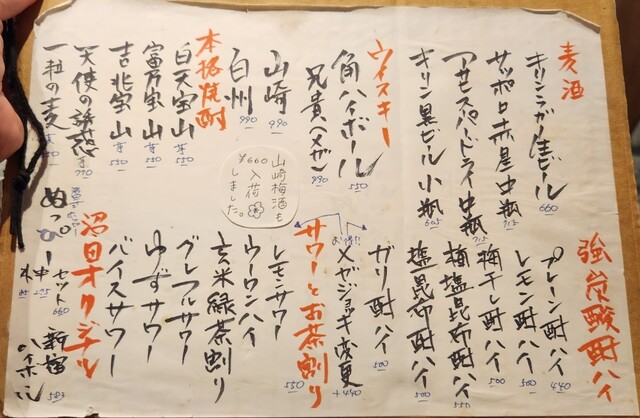 麦酒
キリンラガー生ビール 660
サッポロ赤星中瓶 715
アサヒスパードライ中瓶 715
キリン黒ビール小瓶 605
ウイスキー
角ハイボール 550
兄貴(メガ) 990
山崎 990
白州 990
山崎梅酒も
¥660入荷
しました。
本格焼酎
白天宝山 芋 550
富乃宝山 芋 550
吉兆宝山 芋 550
天使の誘惑 芋 770
一粒の麦
強炭酸酎ハイ
プレーン酎ハイ 440
レモン酎ハイ 500
梅干し酎ハイ 500
梅塩昆布酎ハイ 550
塩昆布酎ハイ 500
ガリ酎ハイ 500
お得!!
メガジョッキ変更 +440
サワーとお茶割り 550
レモンサワー
ウーロンハイ
玄米緑茶割り
グレフルサワー
ゆずサワー
バイスサワー
沼田オリジナル
ぬっぴー セット 660
中 275
新宿ハイボール 583